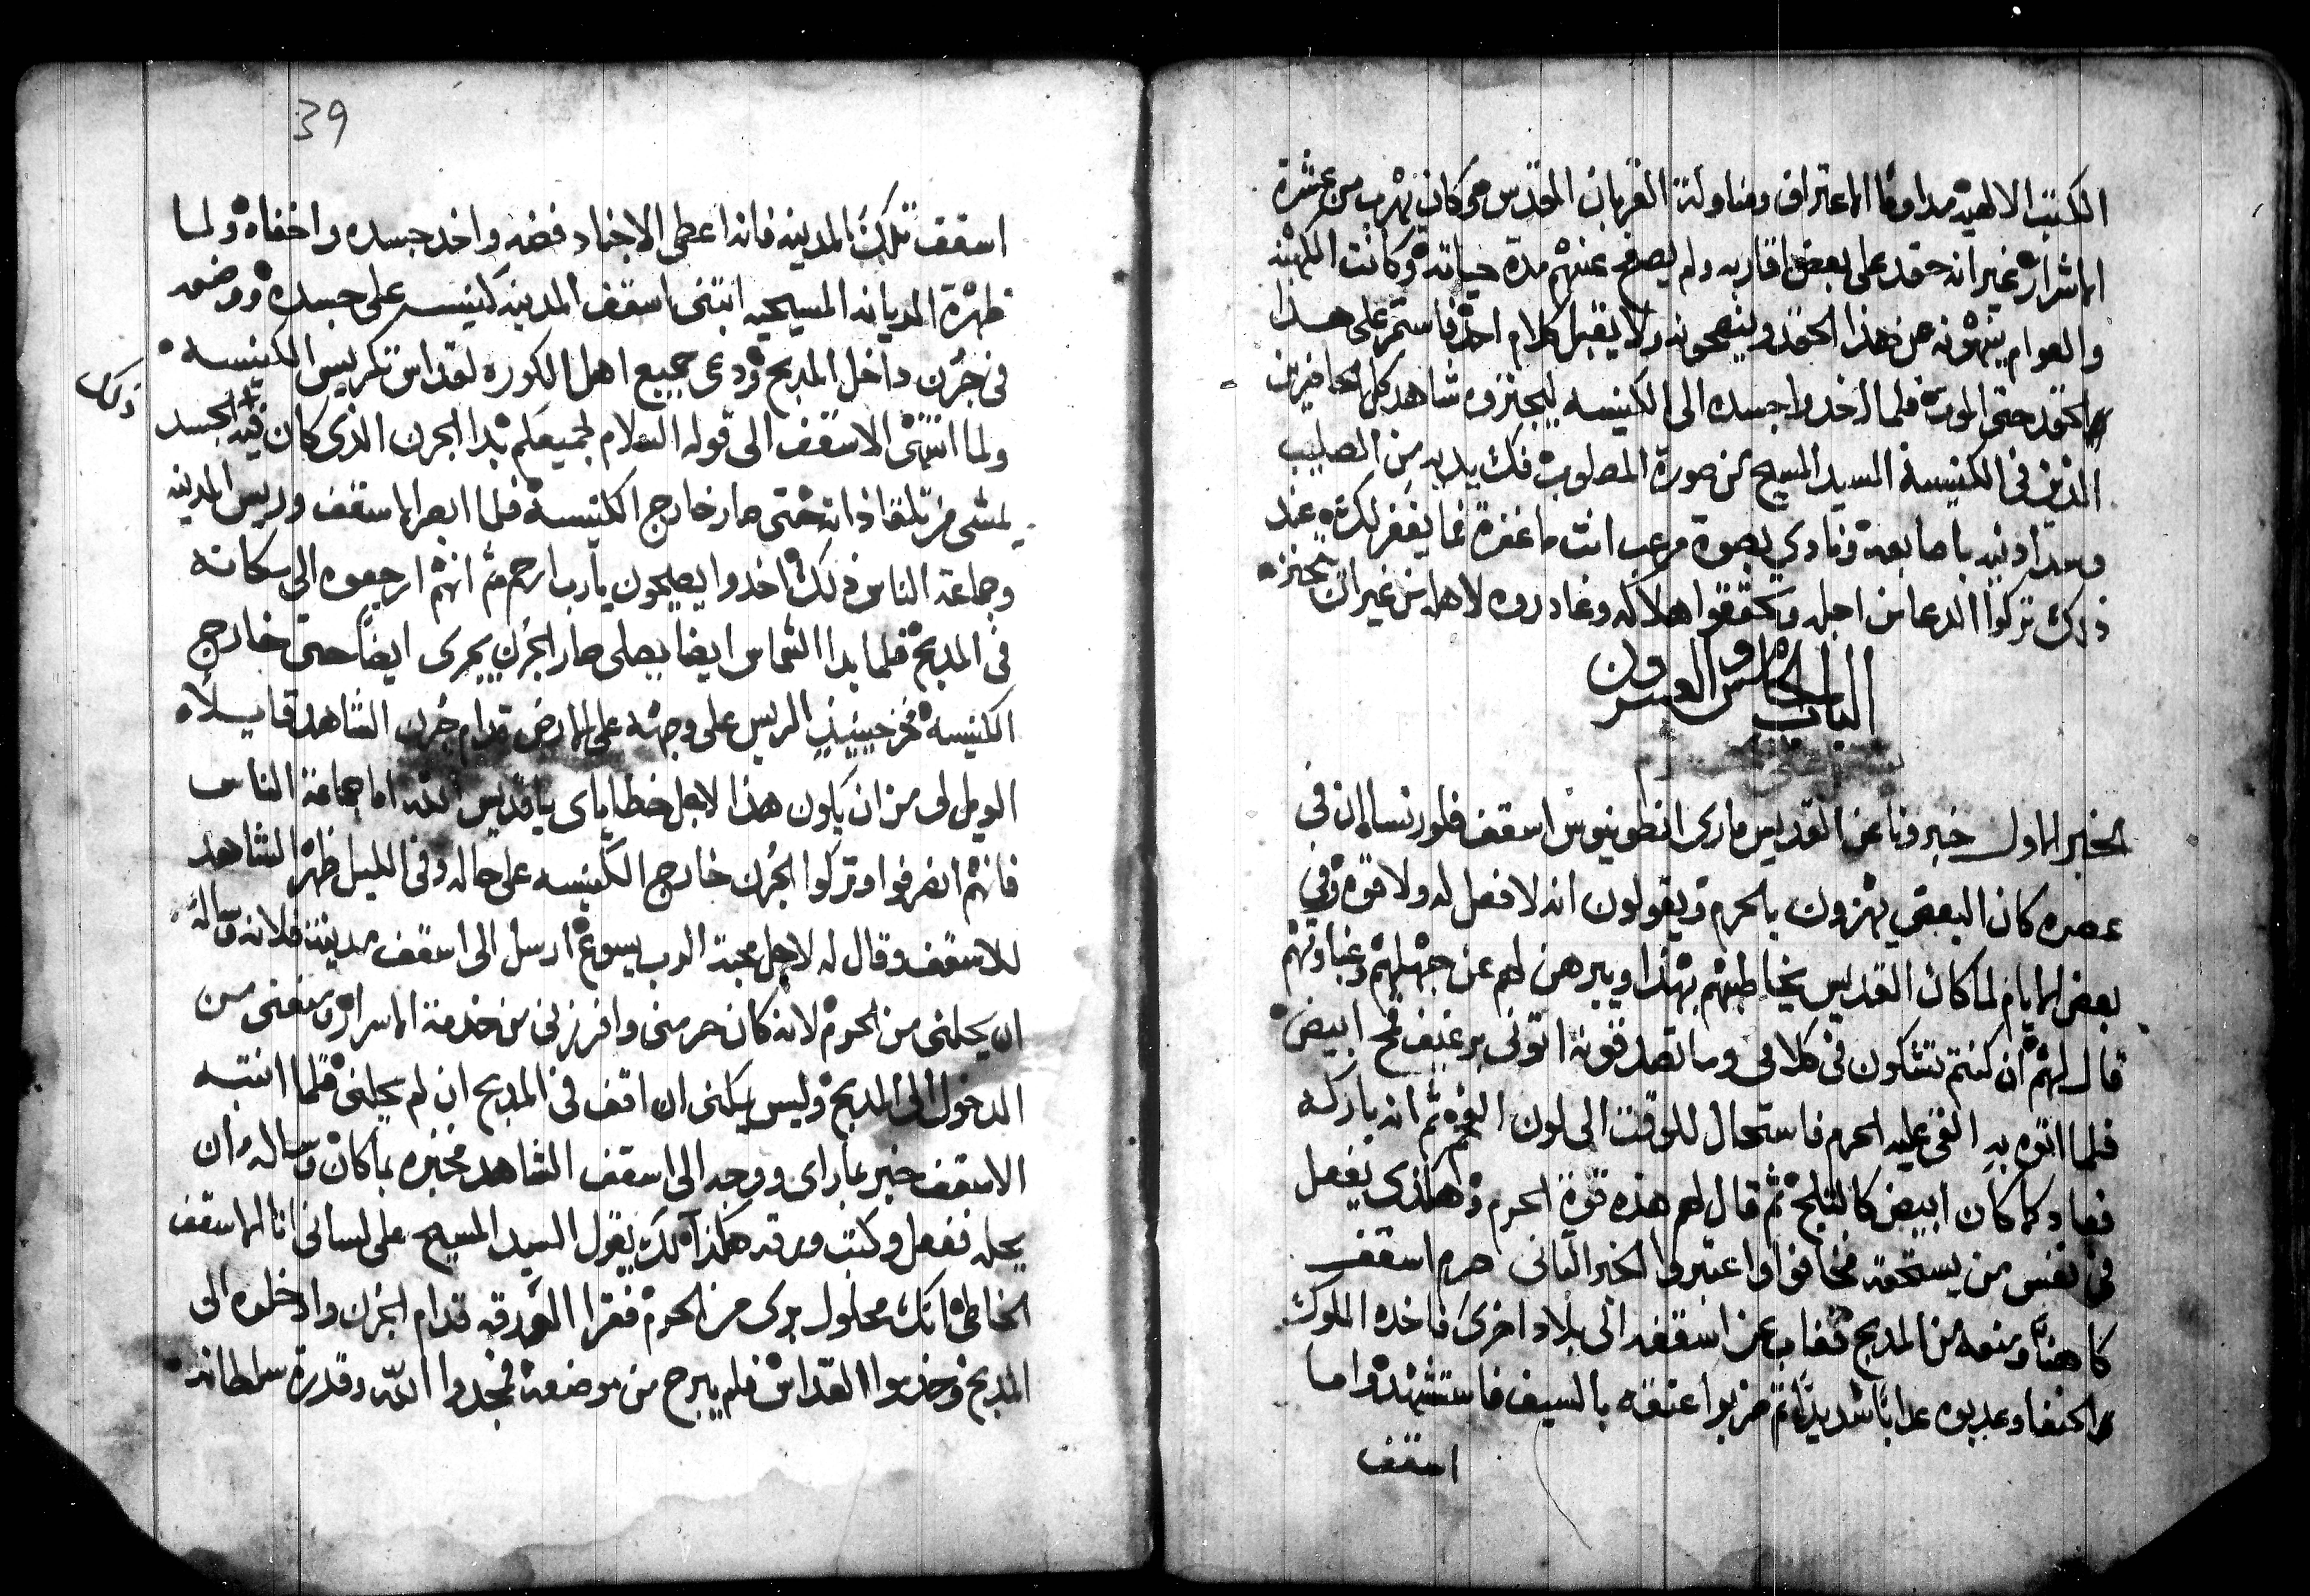 الكتب الالهيه مداوما الاعتراف ومناولة القربان المقدس وكان يهرب من عشرة
الاشرار غير انه حقد على بعض اقاربه ولم يصفح عنهم مدة حياته وكانت الكهنه
والعوام ينهونه عن هذا الحقد وينصحونه ولا يقبل كلام احد فاستمر على هذا
الحقد حتى الموت فلما اخدوا جسده الى الكنيسه ليجنزوه شاهد كل الحاضرين
الذين في الكنيسة السيد المسيح من صورة المصلوب فك يديه من الصليب
وسد ادنيه باصابعه ونادي بصوة مرعب انت ما غفرة فما يغفر لك عند
ذلك تركوا الدعا من اجله وتحققوا هلاكه وغادروه لاهله من غير ان يجنزه
الباب الخامس والعشرون
الخبر الاول خبرونا عن القديس ماري انطونيوس اسقف فلورنسا ان في
عصره كان البعض يهزون بالحرم ويقولون انه لا فعل له ولا قوه وفي
بعض الايام لما كان القديس يخاطبهم بهذا ويبرهن لهم عن جهلهم وغباوتهم
قال لهم ان كنتم تشكون في كلامي وما تصدقونه اتوني برغيف قمح ابيض
فلما اتوه به القى عليه الحرم فاستحال للوقت الى لون الفحم ثم انه باركه
فعاد كما كان ابيض كالتلج ثم قال لهم هذه قوة الحرم وهكذي يفعل
في نفس من يستحقه فخافوا واعتبروا الخبر التاني حرم اسقف
كاهنًا ومنعه من المدبح فغاب عن اسقفه الى بلاد اخرى فاخده الملوك
الحنفا وعدبوه عدابًا شديدًا ثم ضربوا عنقه بالسيف فاستشهد واما
اسقف
39
اسقف تلك المدينه فانه اعطى الاجناد فضه واخد جسده واخفاه ولما
ظهرة الديانه المسيحيه ابتنى اسقف المدينه كنيسه على جسده ووضعه
في جرن داخل المدبح ودعى جميع اهل الكوره لقداس تكريس الكنيسه
ولما انتهى الاسقف الى قوله السلام لجميعكم بدا الجرن الذي كان فيه الجسد
ذلك
يمشي من تلقا ذاته حتى صار خارج الكنيسة فلما ابصر الاسقف وريس المدينه
وجماعة الناس ذلك اخدوا يصيحون يارب ارحم ثم انهم ارجعوه الى مكانه
في المدبح فلما بدا الشماس ايضا يصلى صار الجرن يجرى ايضًا حتى خارج
الكنيسه فخر حينيذٍ الريس على وجهه على الارض قدام جرن الشاهد قايلًا
الويل لى من ان يكون هذا لاجل خطاياى يا قديس الله اما جماعة الناس
فانهم انصرفوا وتركوا الجرن خارج الكنيسه على حاله وفي الليل ظهر الشاهد
للاسقف وقال له لاجل محبة الرب يسوع ارسل الى اسقف مدينة فلانه وساله
ان يحلني من الحرم لانه كان حرمني وافرزني من خدمة الاسرار ومنعني من
الدخول الى المدبح وليس يمكنى ان اقف في المدبح ان لم يحلني فلما انتبه
الاسقف خبر بما راى ووجه الى اسقف الشاهد فخبره بما كان وساله ان
يحله ففعل وكتب ورقه هكذا لك يقول السيد المسيح على لساني انا الاسقف
الخاطى انك محلول برى من الحرم فقرا الورقه قدام الجرن وادخلوه الى
المدبح وخدموا القداس فلم يبرح من موضعه فمجدوا الله وقدرة سلطانه